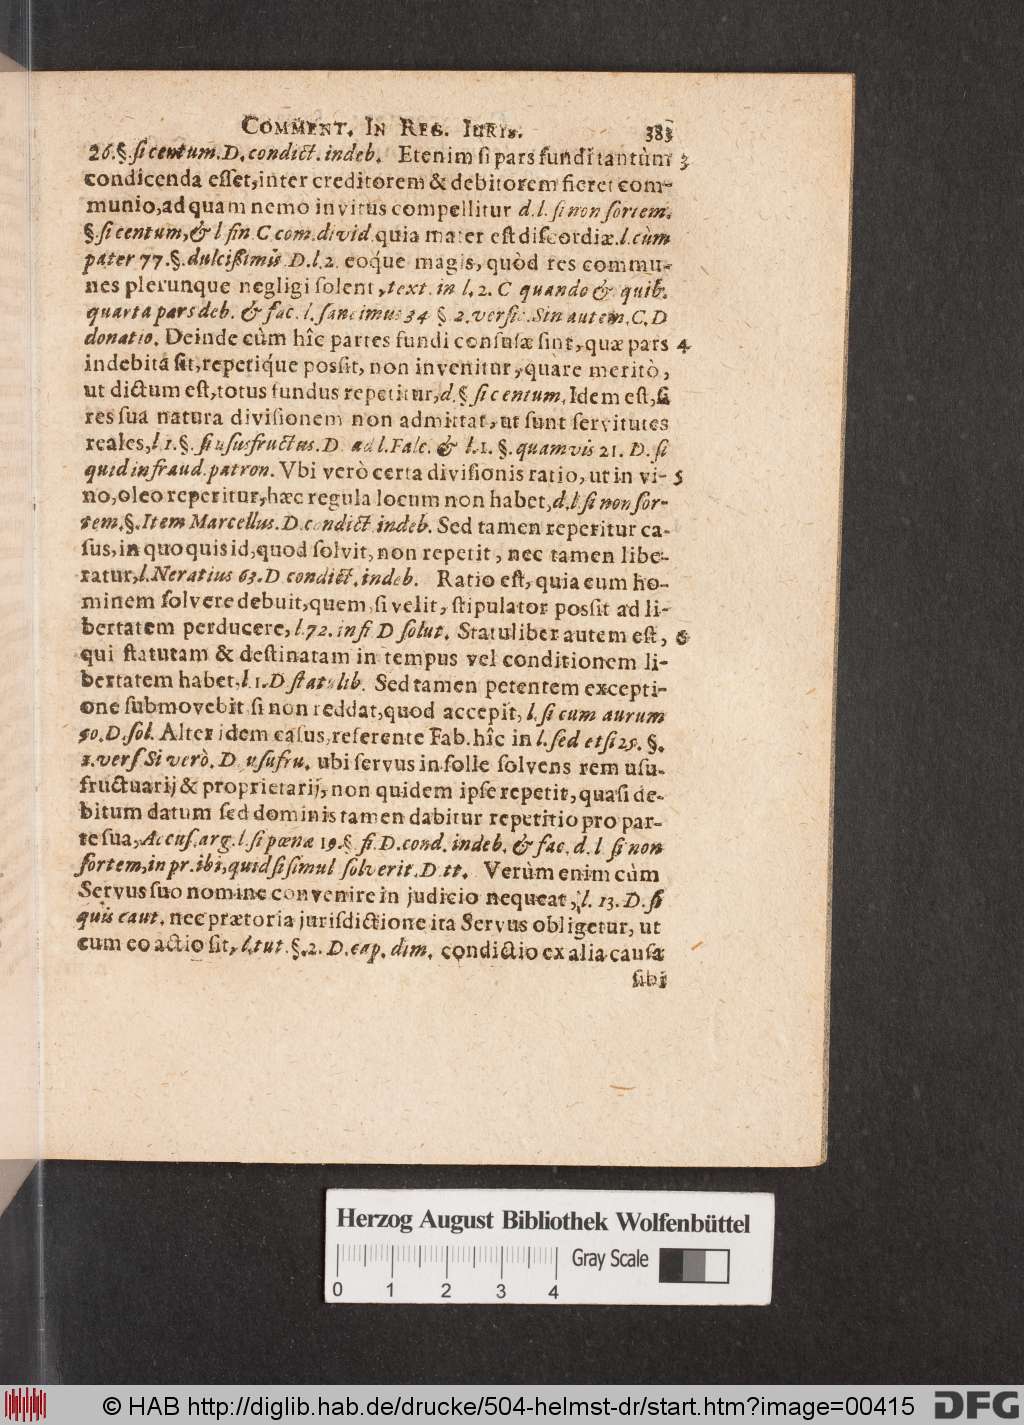 COMMENT. IN REG. IURIS. 383
26.§.ſi centum.D.condict.indeb. Etenim ſi pars fundi tantùm 3
condicenda eſſet,inter creditorem & debitorem fieret com-
munio,ad quam nemo invitus compellitur d.l.ſi non ſortem.
§.ſi centum,& l fin C com.divid quia mater eſt diſcordiæ.l.cùm
pater 77.§.dulciſſimis D.l.2. eoq́ue magis, quòd res commu-
nes plerunque negligi ſolent,text.in l.2.C quando & quib.
quarta pars deb. & fac.l.ſancimus 34 § 2.verſic.Sin autem.C.D
donatio. Deinde cùm hîc partes fundi confuſæ ſint,quæ pars 4
indebita ſit,repetiq́ue poſſit, non invenitur,quàre meritò,
ut dictum eſt,totus fundus repetitur,d.§ ſi centum.Idem eſt,ſi
res ſua natura diviſionem non admittat,ut ſunt ſervitutes
reales,l.1.§.ſi uſusfructus.D. ad l.Falc. & l.1. §.quamvis 21. D.ſi
quid in fraud.patron. Vbi verò certa diviſionis ratio,ut in vi- 5
no,oleo reperitur,hæc regula locum non habet,d.l ſi non ſor-
tem.§.Item Marcellus.D.condict.indeb. Sed tamen reperitur ca-
ſus,in quo quis id,quod ſolvit,non repetit, nec tamen libe-
ratur,l.Neratius 63.D condict.indeb. Ratio eſt, quia eum ho-
minem ſolvere debuit,quem,ſi velit, ſtipulator poſſit ad li-
bertatem perducere,l.72.in fi D ſolut. Statuliber autem eſt, 6
qui ſtatutam & deſtinatam in tempus vel conditionem li-
bertatem habet,l.1.D ſtatulib. Sed tamen petentem excepti-
one ſubmovebit ſi non reddat,quod accepit,l.ſi cum aurum
50.D.ſol. Alter idem caſus,referente Fab.hîc in l.ſed etſi 25.§.
1.verſ Si verò.D.uſufru. ubi ſervus in ſolle ſolvens rem uſu-
fructuarij & proprietarij,non quidem ipſe repetit,quaſi de-
bitum datum ſed dominis tamen dabitur repetitio pro par-
te ſua,Accuſ.arg.l.ſi pœnæ 19.§ fi.D.cond.indeb.& fac.d.l.ſi non
ſortem,in pr.ibi,quid ſi ſimul ſolverit.D.tt. Verùm enim cùm
Servus ſuo nomine convenire in judicio nequeat, l. 13. D.ſi
quis caut. nec prætoria jurisdictione ita Servus obligetur, ut
cum eo actio ſit, l.tut.§.2.D.cap.dim. condictio ex alia cauſa
ſibi
Herzog August Bibliothek Wolfenbüttel
Gray Scale
0 1 2 3 4
© HAB http://diglib.hab.de/drucke/504-helmst-dr/start.htm?image=00415
DFG